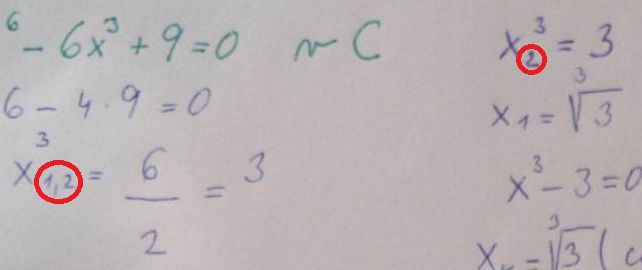 ⁶ - 6x³ + 9 = 0 ~ C
6 - 4 · 9 = 0
x³₁,₂ = 6/2 = 3
x₂³ = 3
x₁ = ³√3
x³ - 3 = 0
= ³√3 (